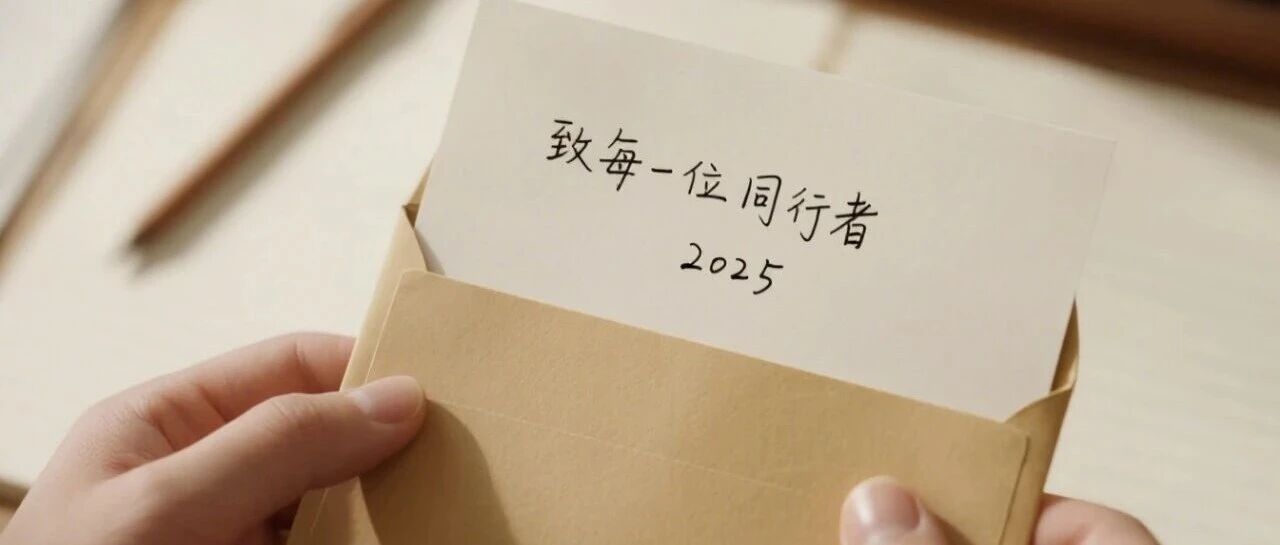 致每一位同行者
2025